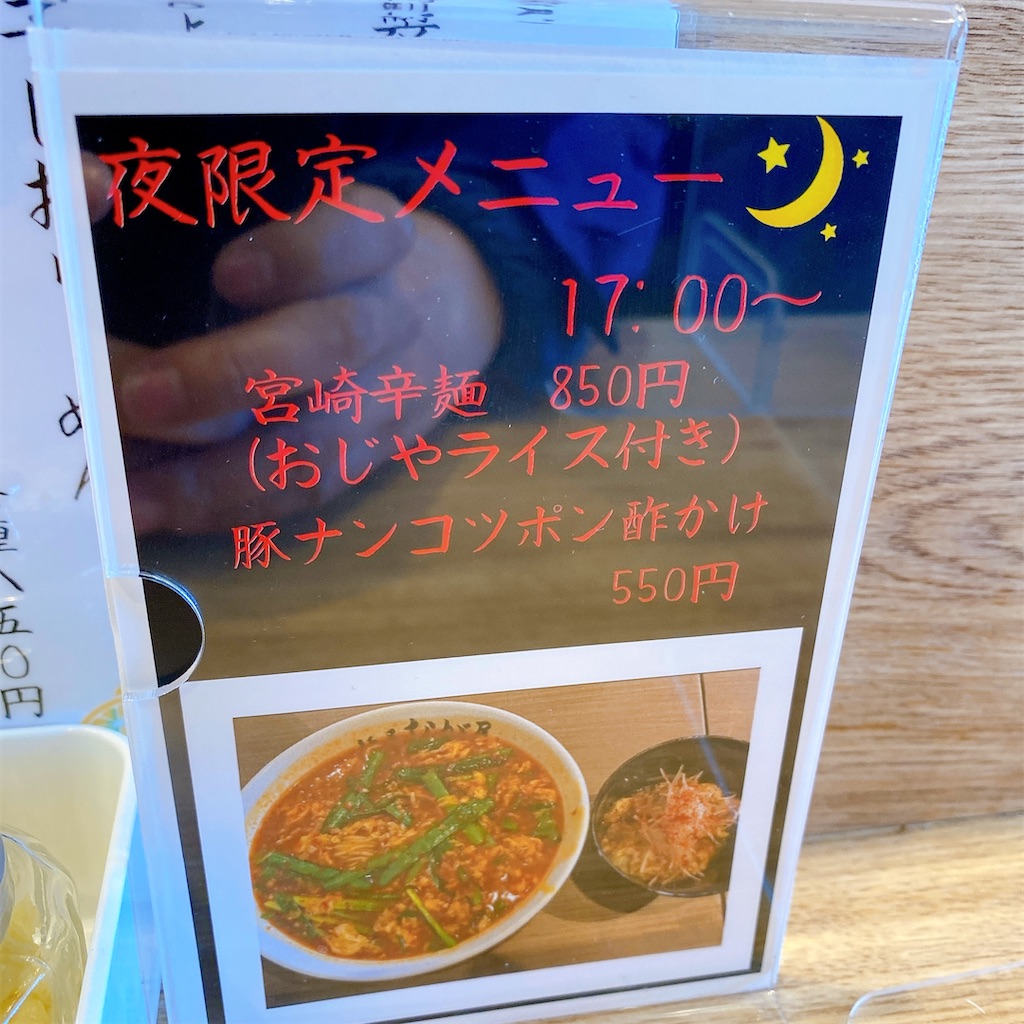 夜限定メニュー
17:00～
宮崎辛麺 850円
(おじやライス付き)
豚ナンコツポン酢かけ
550円
五〇円